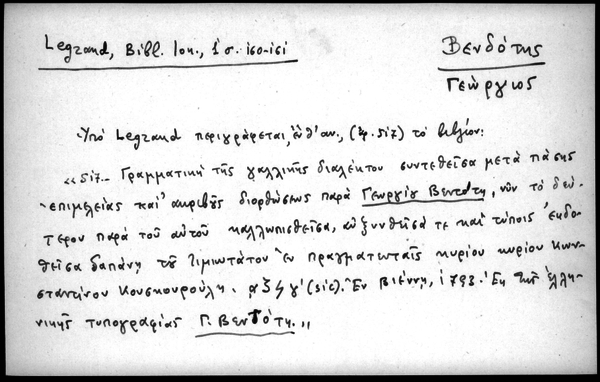 Legrand, Bibl. Ion., 1 σ. 150-151
Βενδότης
Γεώργιος
Ὑπό Legrand περιγράφεται, ἔνθ' ἀν., (ἀρ. 517) τό βιβλίον:
«517.- Γραμματική τῆς γαλλικῆς διαλέκτου συντεθεῖσα μετά πάσης
ἐπιμελείας καί ἀκριβῆς διορθώσεως παρά Γεωργίου Βεντότη, νῦν τό δεύ-
τερον παρά τοῦ αὐτοῦ καλλωπισθεῖσα, αὐξυνθεῖσά τε καί τύποις ἐκδο-
θεῖσα δαπάνῃ τοῦ τιμιωτάτου ἐν πραγματευταῖς κυρίου κυρίου Κων-
σταντίνου Κουσκουρούλη. αψϟγ' (sic). Ἐν Βιέννῃ, 1793. Ἐκ τῆς ἑλλη-
νικῆς τυπογραφίας Γ. Βεντότη.»